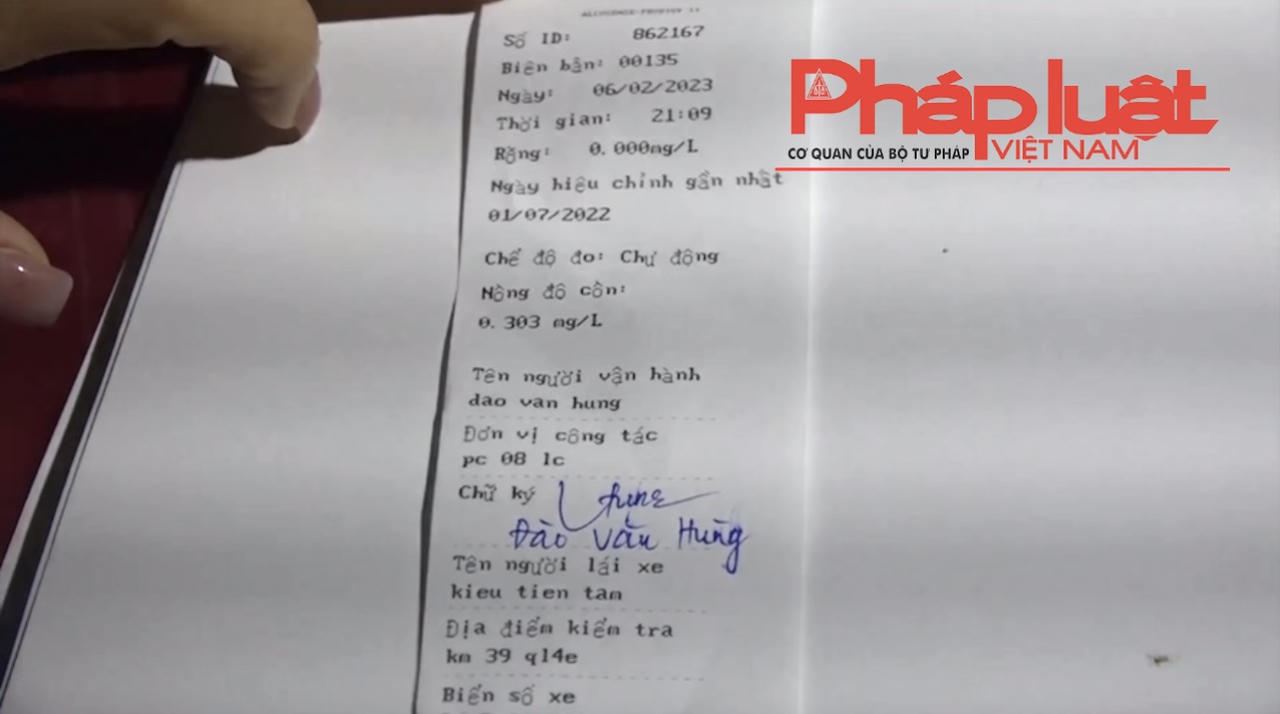 Số ID: 862167
Biên bản: 00135
Ngày: 06/02/2023
Thời gian: 21:09
Rỗng: 0.000mg/L
Ngày hiệu chỉnh gần nhất
01/07/2022
Chế độ đo: Chự động
Nồng độ cồn:
0.303 mg/L
Tên người vận hành
dao van hung
Đơn vị công tác
pc 08 lc
Chữ ký
Đào Văn Hùng
Tên người lái xe
kieu tien tam
Địa điểm kiểm tra
km 39 ql4e
Biển số xe
Pháp luật
CƠ QUAN CỦA BỘ TƯ PHÁP VIỆT NAM